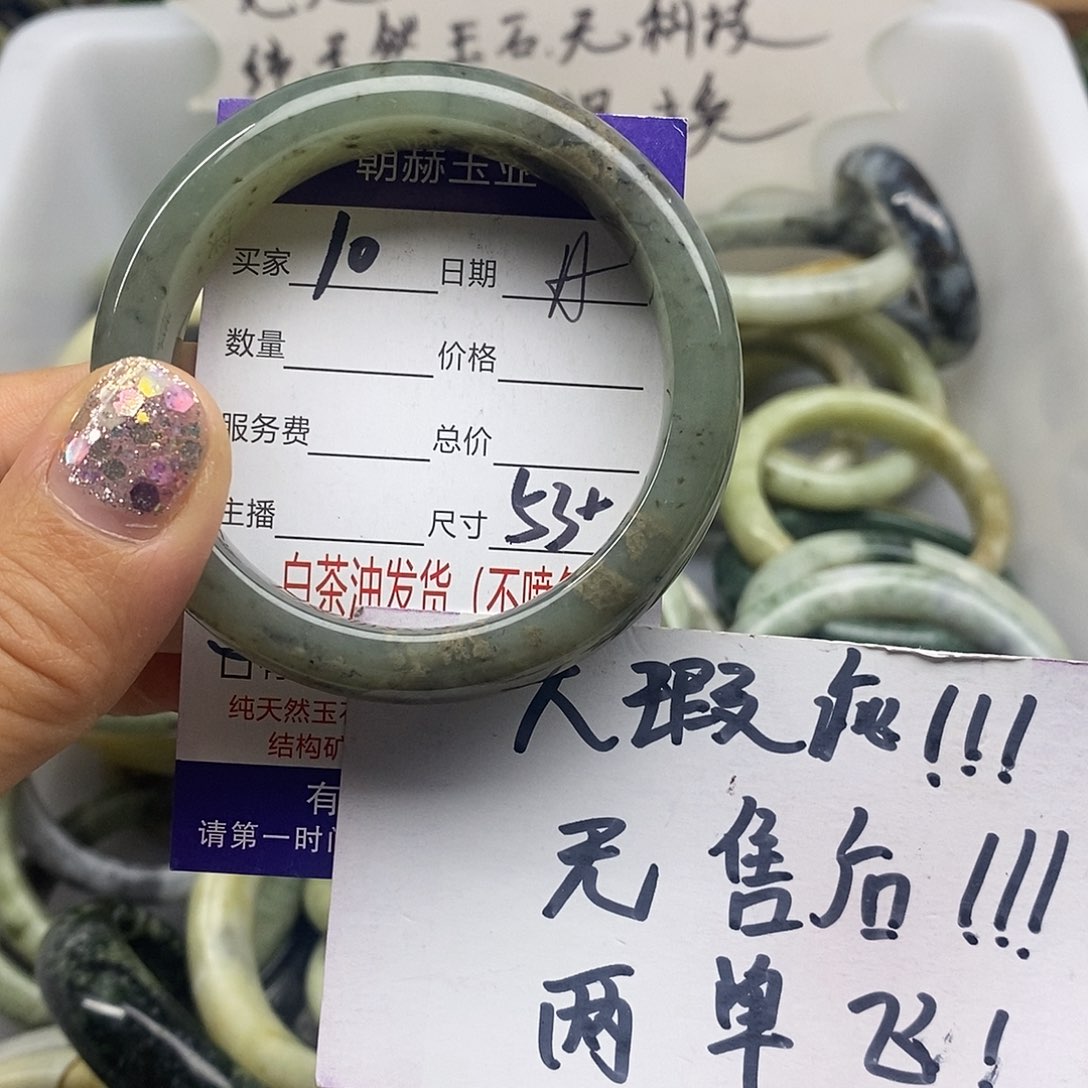 纯天然玉石.无利坡
换
朝赫玉业
买家 10 日期
数量 价格
服务费 总价
主播 尺寸 53+
白茶油发货（不喷
纯天然玉石
结构矿
有
请第一时间
大瑕疵!!!
无售后!!!
两单飞!